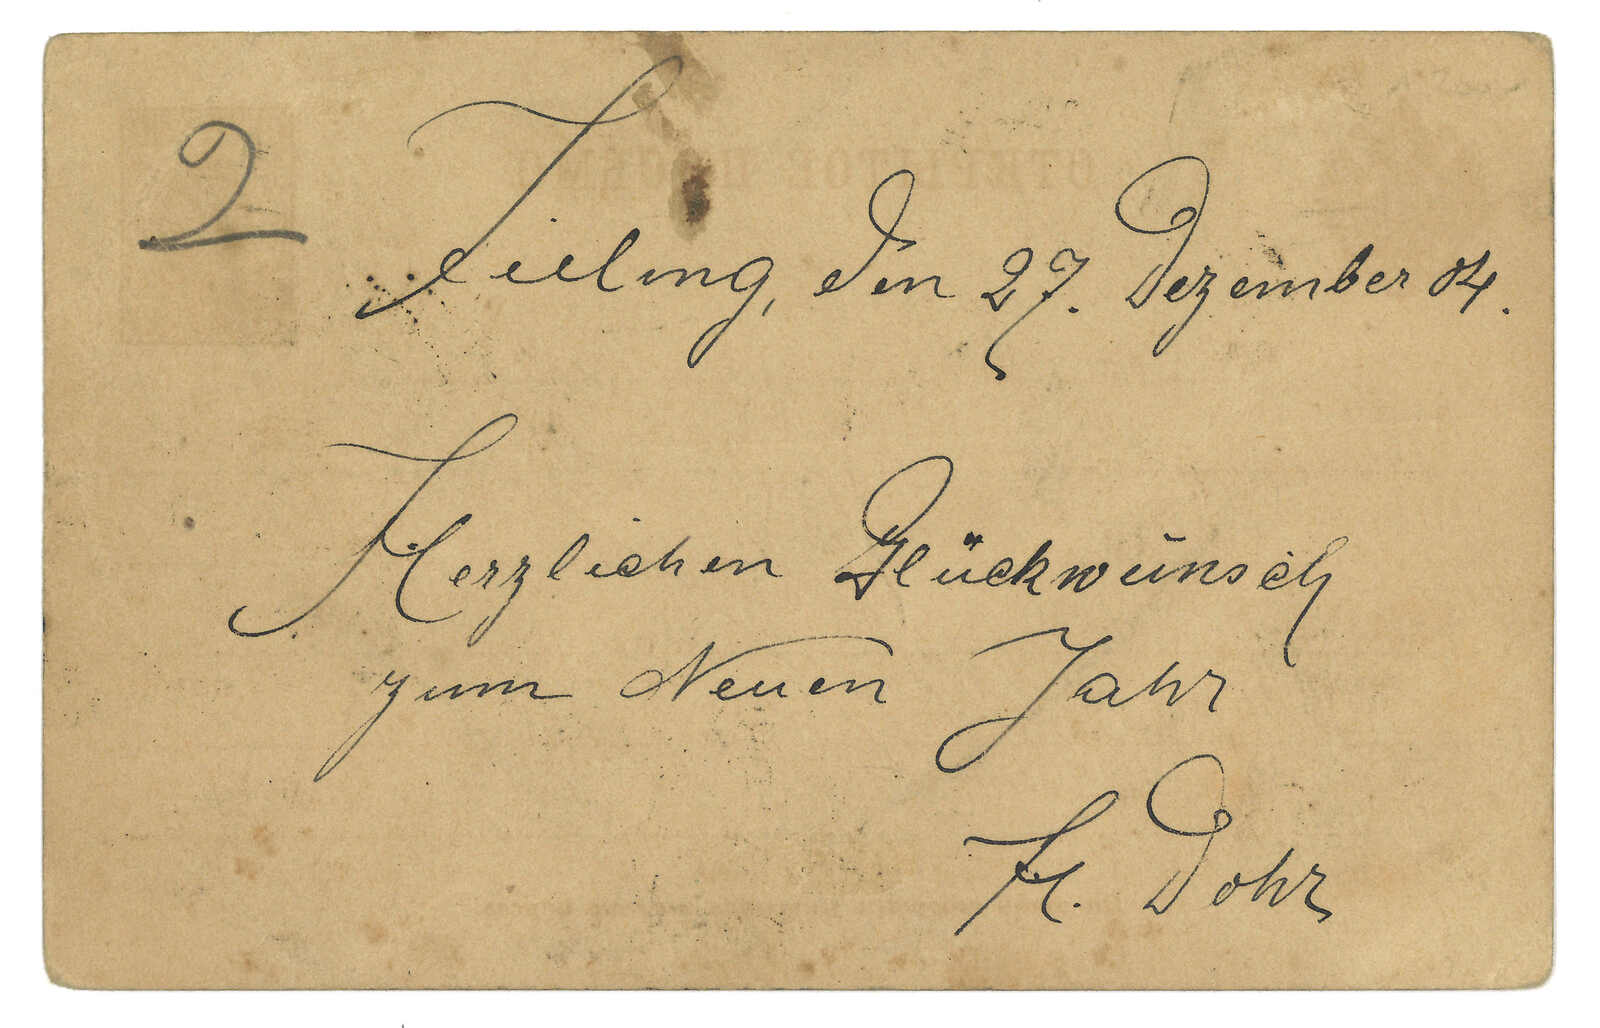 2
Tieling, den 27. Dezember 04.
Herzlichen Glückwunsch
zum Neuen Jahr
H. Dohr